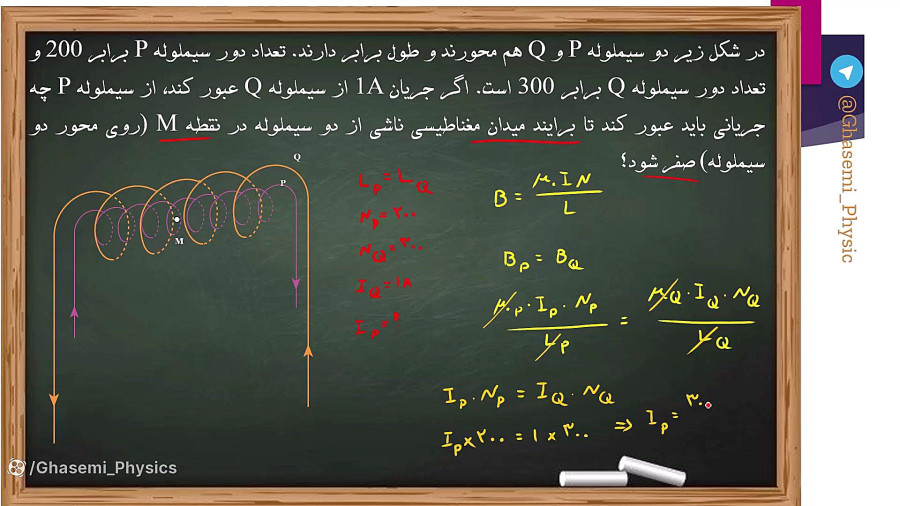 در شکل زیر دو سیملوله P و Q هم محورند و طول برابر دارند. تعداد دور سیملوله P برابر 200 و
تعداد دور سیملوله Q برابر 300 است. اگر جریان 1A از سیملوله Q عبور کند، از سیملوله P چه
جریانی باید عبور کند تا برایند میدان مغناطیسی ناشی از دو سیملوله در نقطه M (روی محور دو
سیملوله) صفر شود؟
Q
P
M
L_P = L_Q
N_P = ۲۰۰
N_Q = ۳۰۰
I_Q = 1A
I_P = ?
B = μ. I N / L
B_P = B_Q
μ._P . I_P . N_P / L_P = μ._Q . I_Q . N_Q / L_Q
I_P . N_P = I_Q . N_Q
I_P × ۲۰۰ = ۱ × ۳۰۰ ⇒ I_P = ۳۰۰
/Ghasemi_Physics
@Ghasemi_Physic